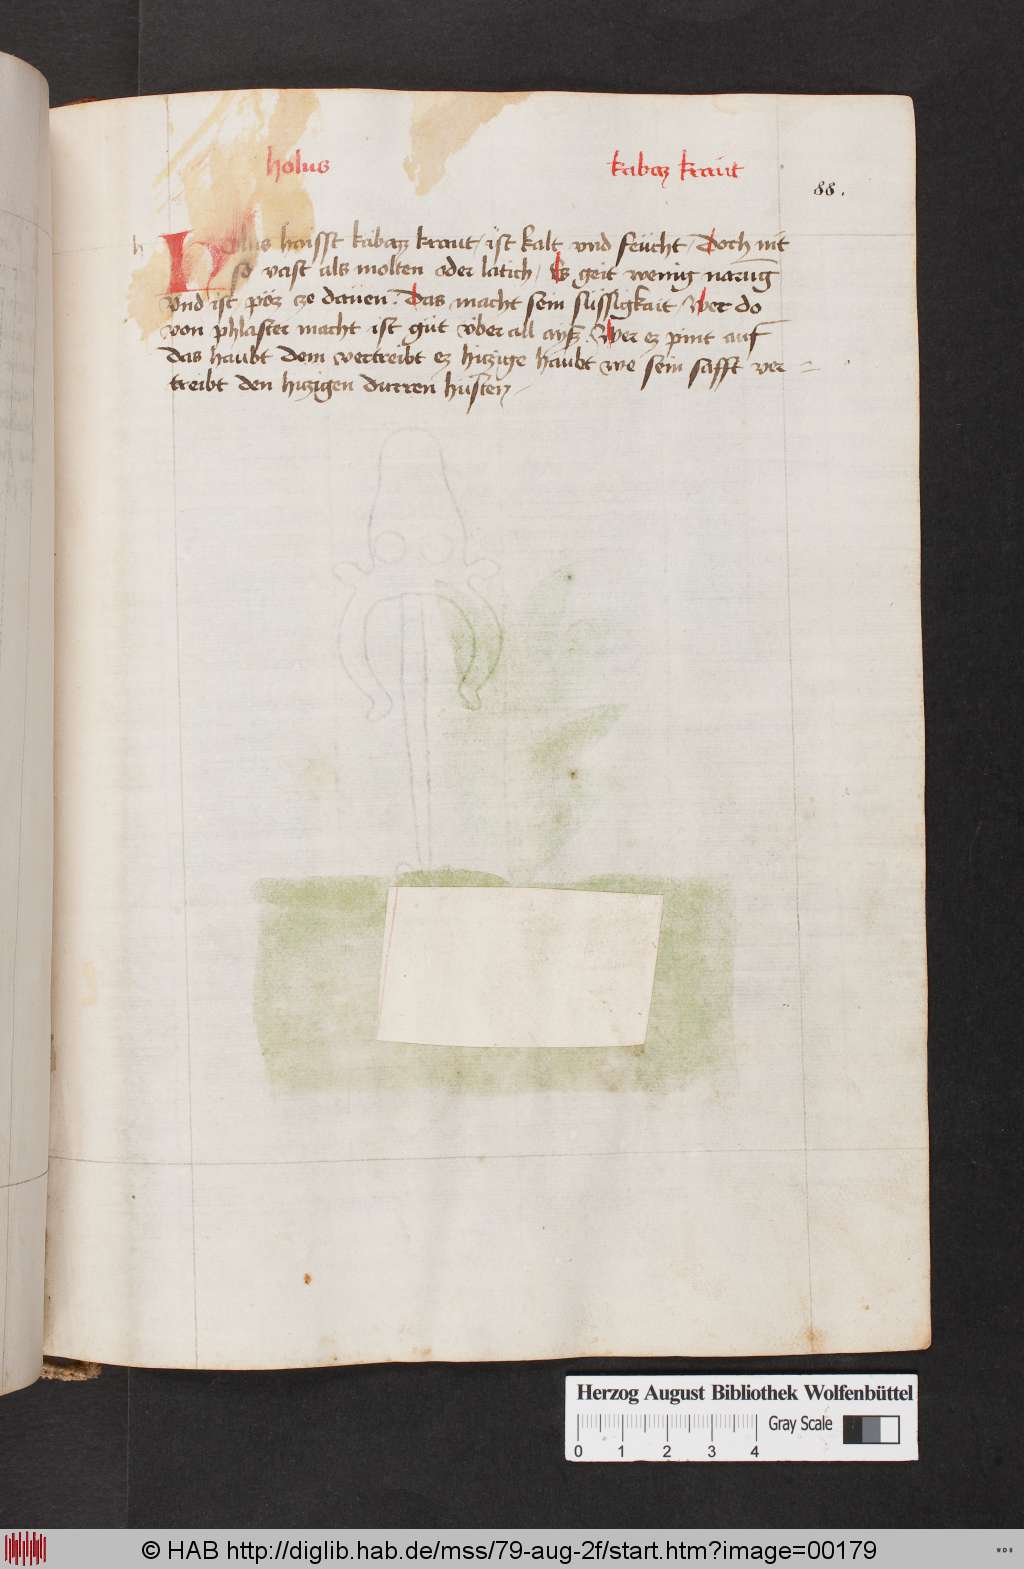 holus kabaz kraut
88.
h
Holus haisst kabaz kraut / ist kalt vnd feücht / Doch nit
so vast als molten oder latich / Es geit wenig narūg
vnd ist pöz cze daüen. Das macht sein süssigkait / Wer do
von phlaster macht ist güt vber all ayß. Wer ez pint auf
das haubt dem vertreibt ez hiczige haubt we sein safft ver =
treibt den hiczigen durren husten /
Herzog August Bibliothek Wolfenbüttel
Gray Scale
0 1 2 3 4
© HAB http://diglib.hab.de/mss/79-aug-2f/start.htm?image=00179